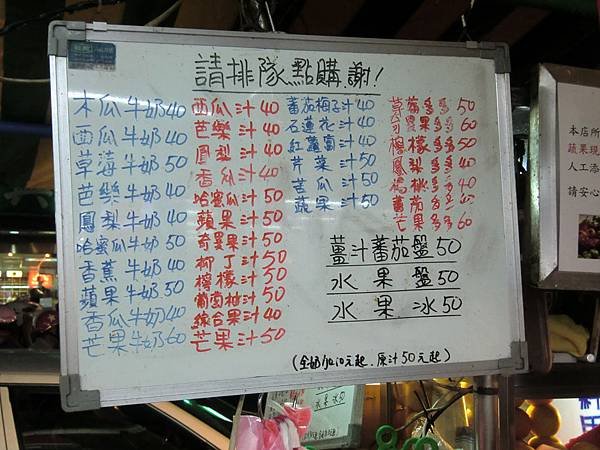 請排隊點購,謝!
木瓜牛奶40
西瓜牛奶40
草莓牛奶50
芭樂牛奶40
鳳梨牛奶40
哈蜜瓜牛奶50
香蕉牛奶40
蘋果牛奶50
香瓜牛奶40
芒果牛奶60
西瓜汁40
芭樂汁40
鳳梨汁40
香瓜汁40
哈蜜瓜汁50
蘋果汁50
奇異果汁50
柳丁汁50
檸檬汁50
葡萄柚汁50
綜合果汁40
芒果汁50
蕃茄梅子汁40
石蓮花汁40
紅蘿蔔汁40
芹菜汁50
苦瓜汁50
蔬果汁50
草莓多多50
奇異果多多60
檸檬多多50
鳳梨多多40
楊桃多多40
蕃茄多多50
芒果多多60
薑汁蕃茄盤50
水果盤50
水果冰50
(全奶加10元起.原汁50元起)
本店所
蔬果現
人工添
請安心
水果冰